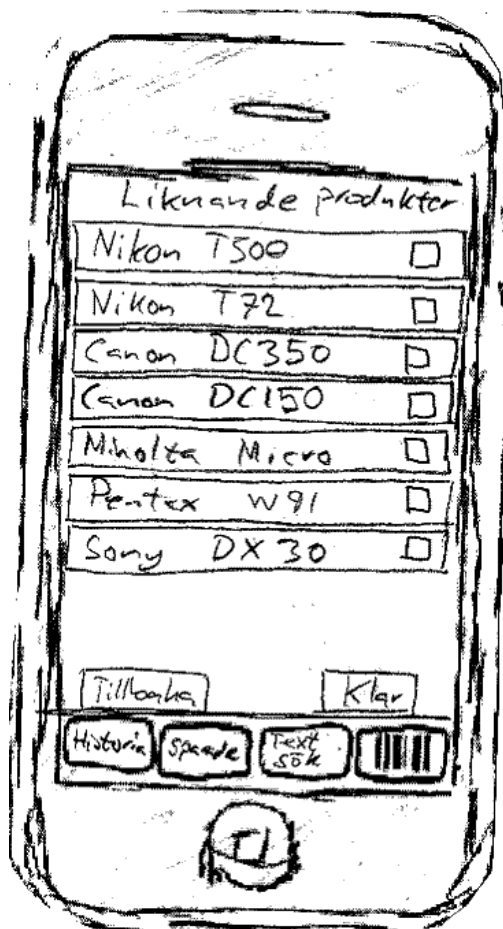 Liknande produkter
Nikon T500
Nikon T72
Canon DC350
Canon DC150
Minolta Micro
Pentax W91
Sony DX 30
Tillbaka Klar
Historia Text sök